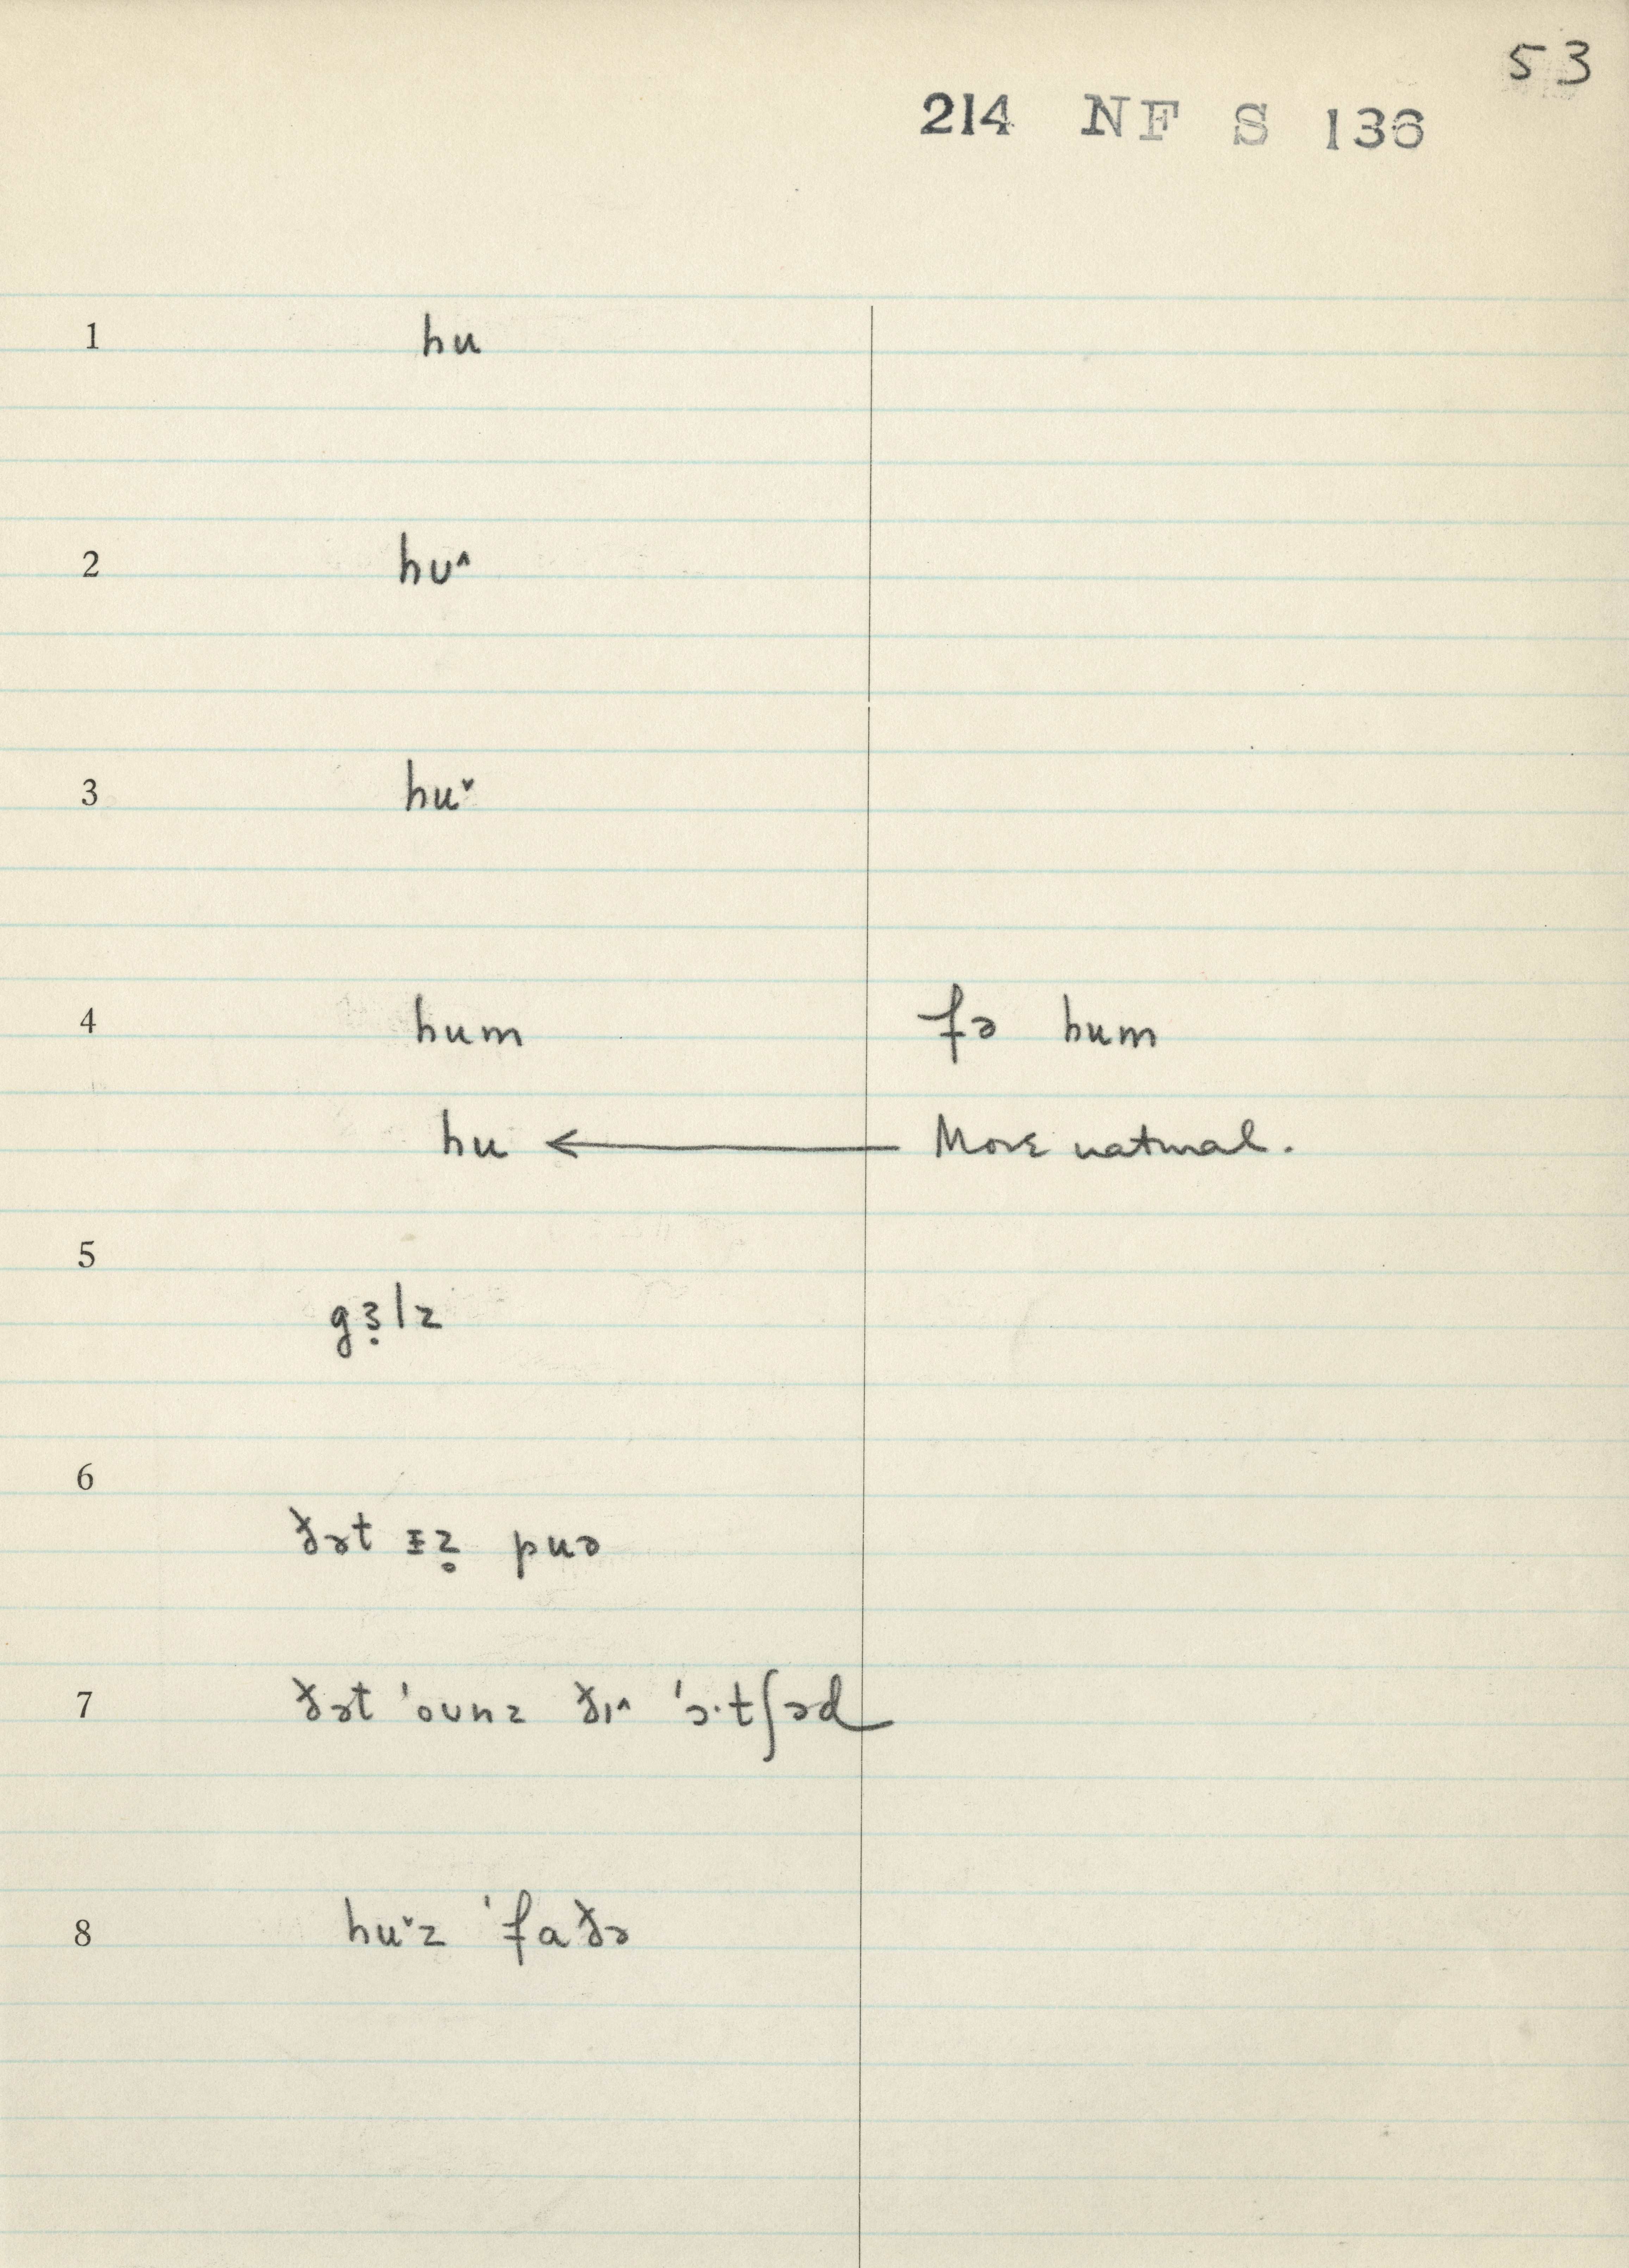 53
214 NF S 136
1 hu
2 hʊ˄
3 hu˅
4 hum fə hum
hu ← More natural.
5
gɜ̣lz
6
ðət ɪz̥ puə
7 ðət ˈoʊnz ðɪ˄ ˈɔ·tʃəd
8 hu˅z ˈfaðə